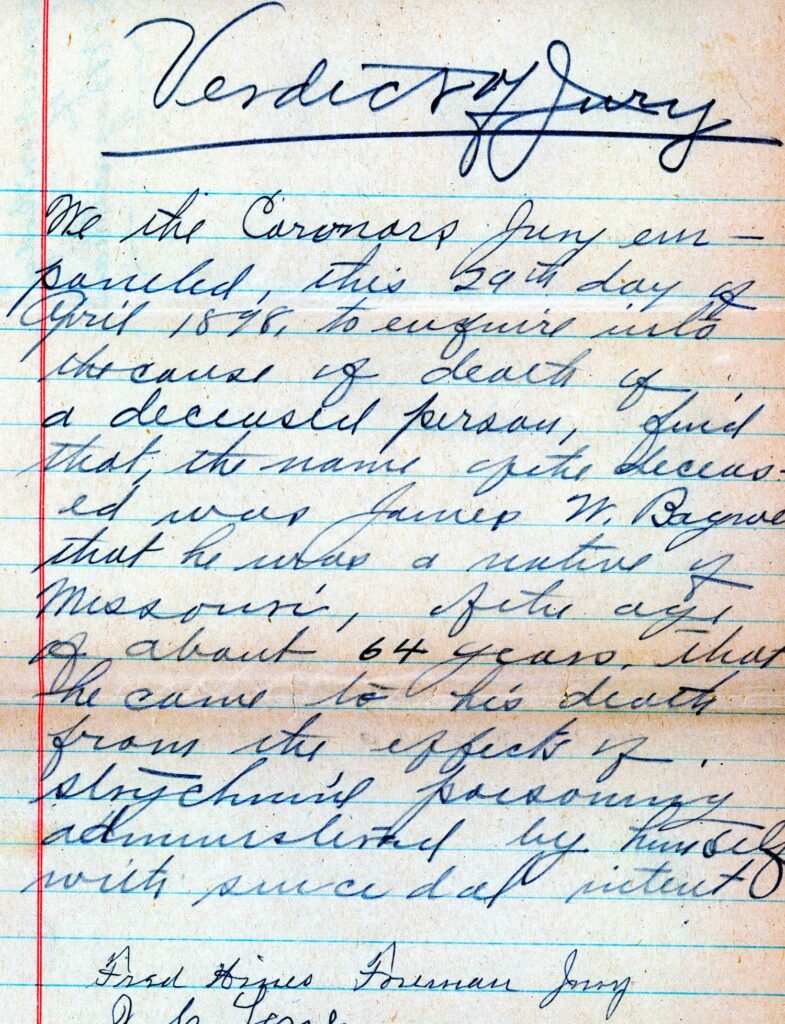 Verdict of Jury
We the Coronors Jury em-
paneled, this 29th day of
April 1898, to enquire into
the cause of death of
a deceased person, find
that, the name of the deceas-
ed was James W. Bagwe
that he was a native of
Missouri, of the age
of about 64 years. that
he came to his death
from the effects of
strychnine poisoning
administered by himself
with suicidal intent
Fred Hines Foreman Jury